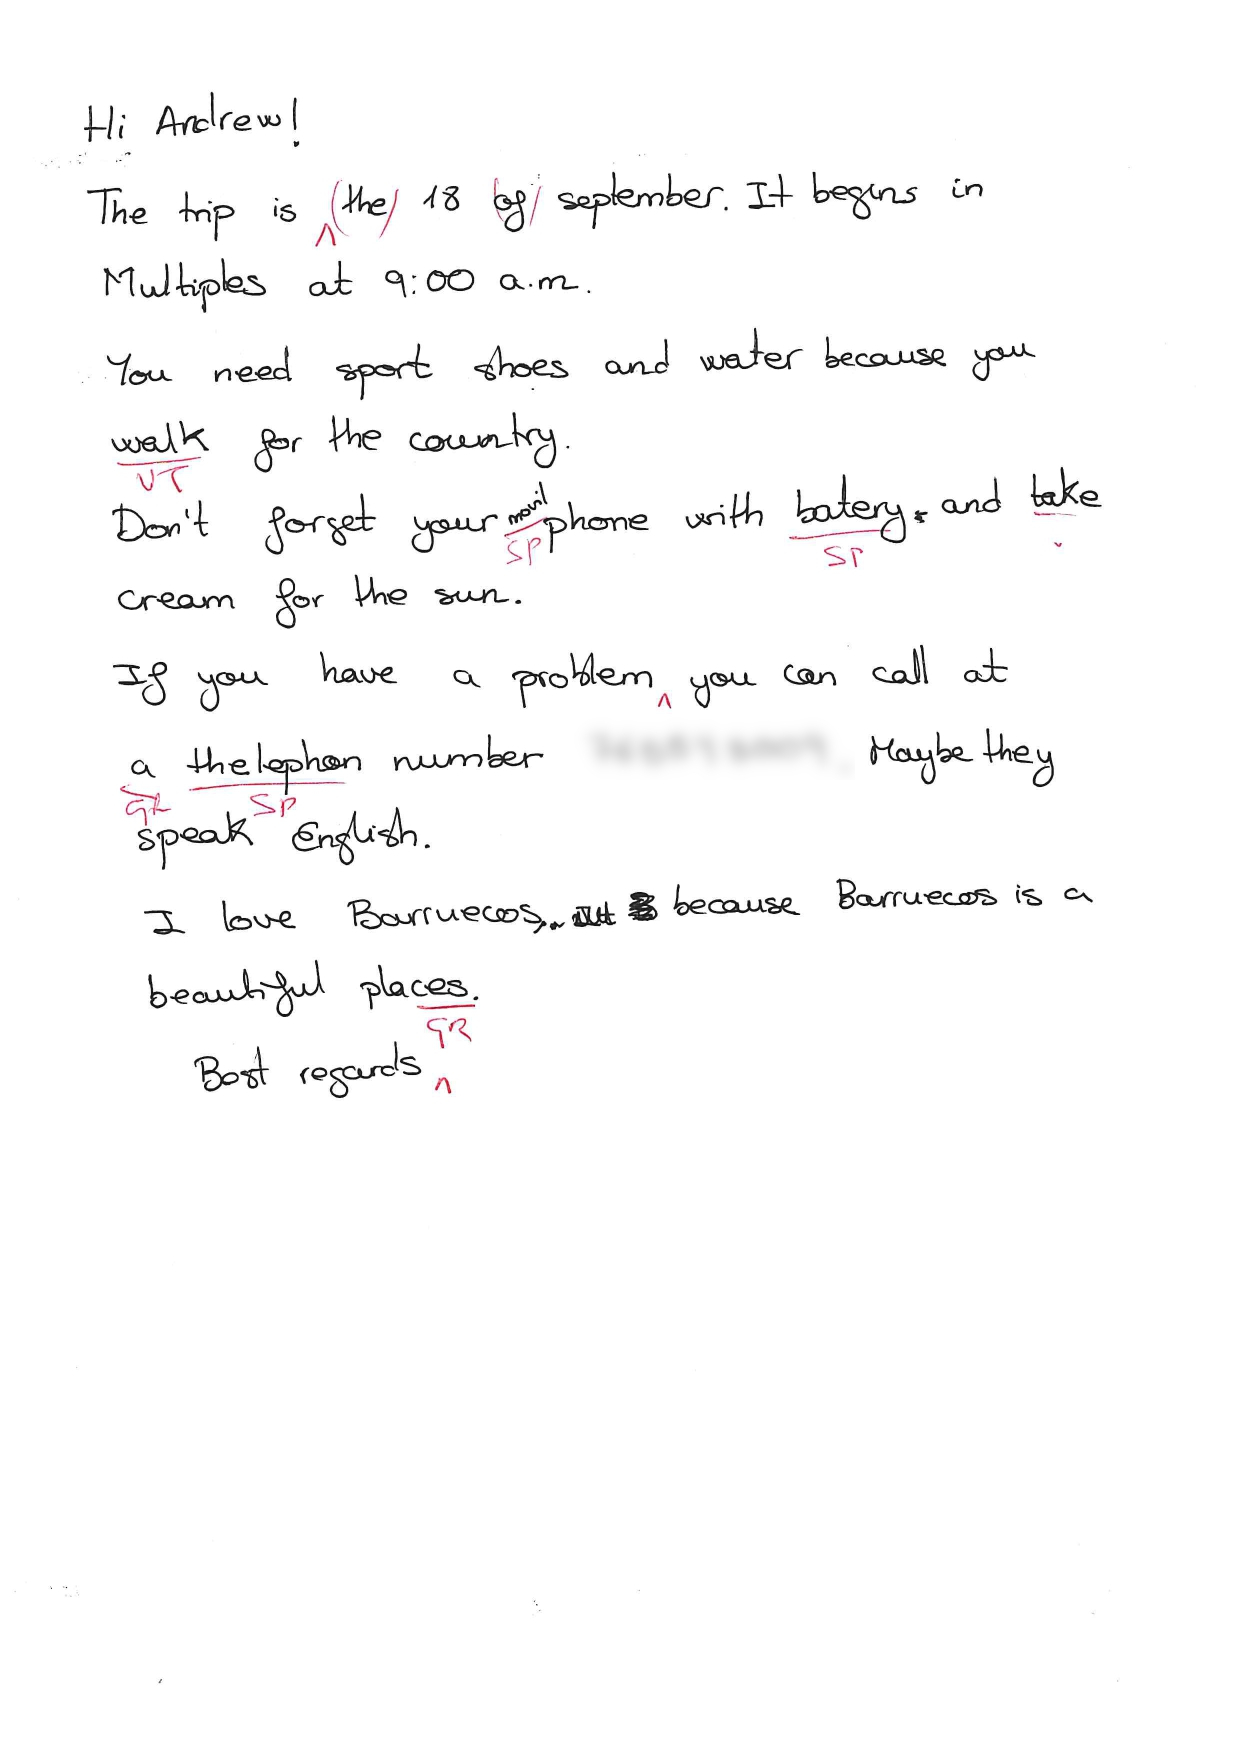 Hi Andrew!
The trip is (the) 18 (of) september. It begins in
Multiples at 9:00 a.m.
You need sport shoes and water because you
walk for the country.
VT
Don't forget your movil phone with batery. and take
SP SP
cream for the sun.
If you have a problem you can call at
a thelephon number Maybe they
GR SP
speak English.
I love Barruecos, because Barruecos is a
beautiful places.
GR
Best regards